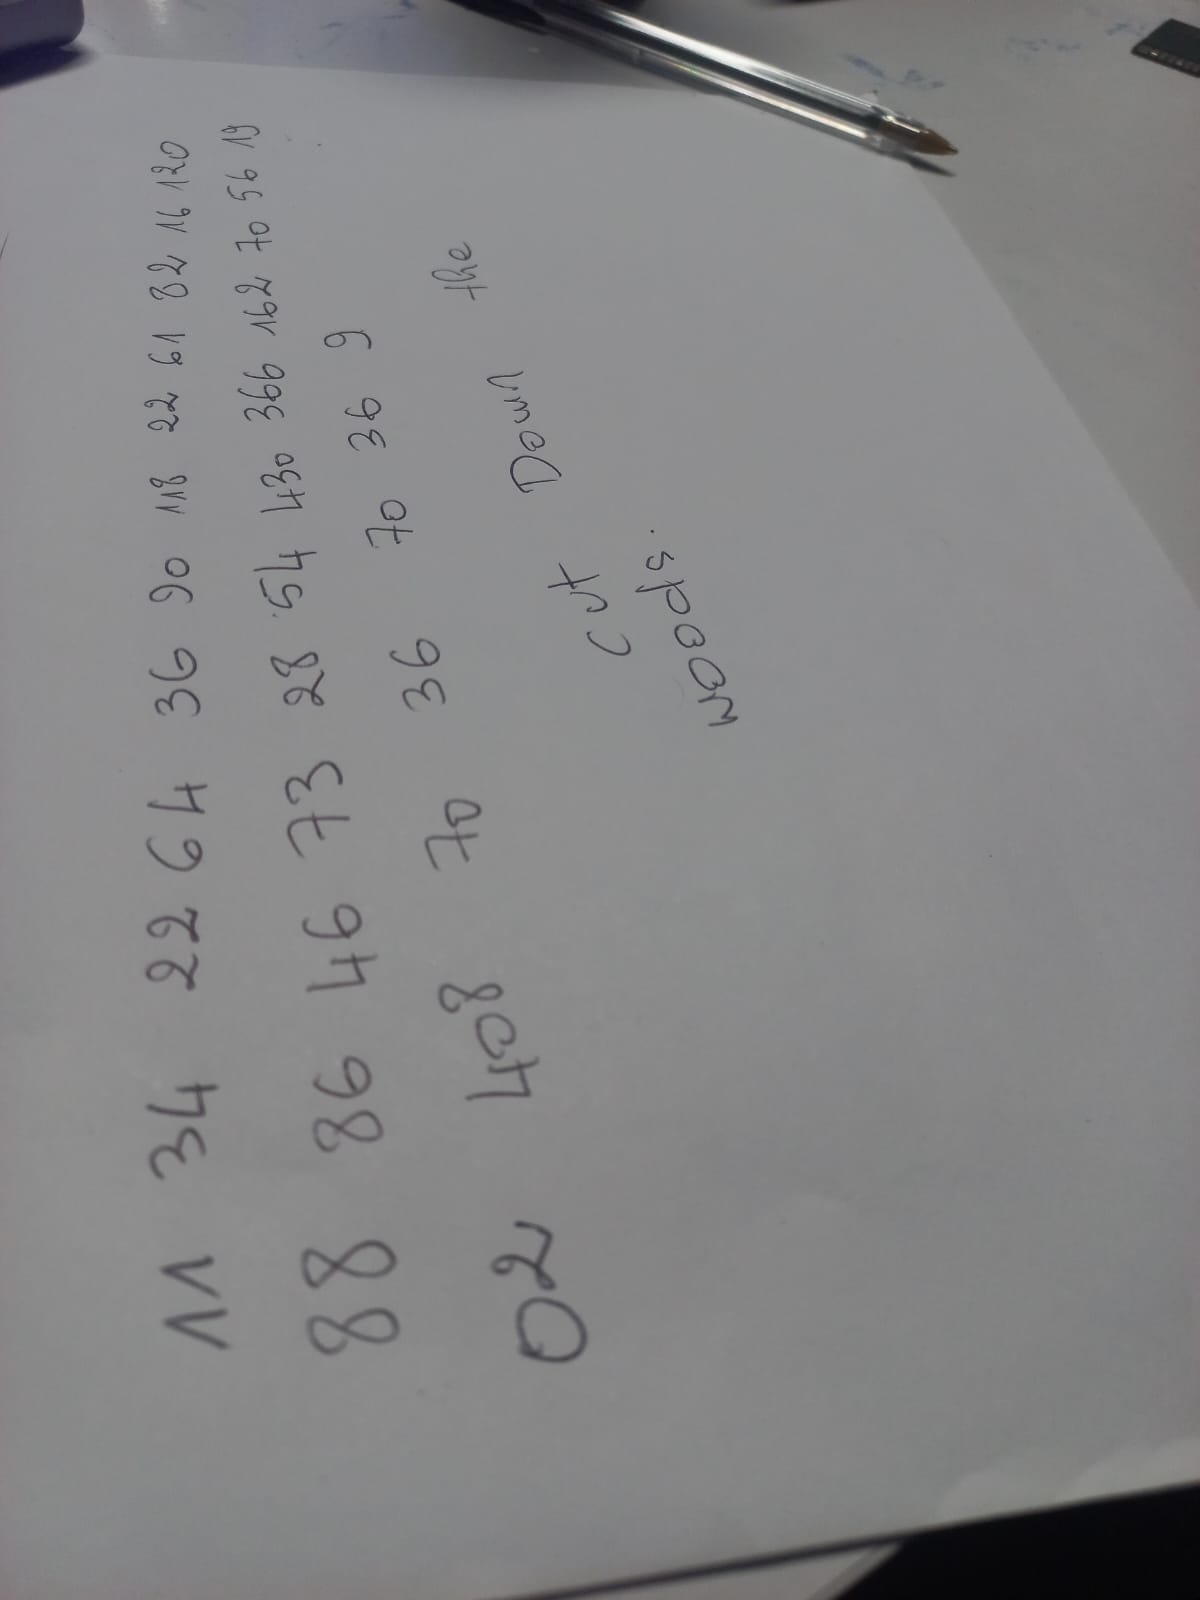 11 34 22 64 36 90 118 22 61 32 16 120
88 86 46 73 28 54 430 366 162 70 56 19
02 408 70 36 70 36 9
Cut Down the
woods.